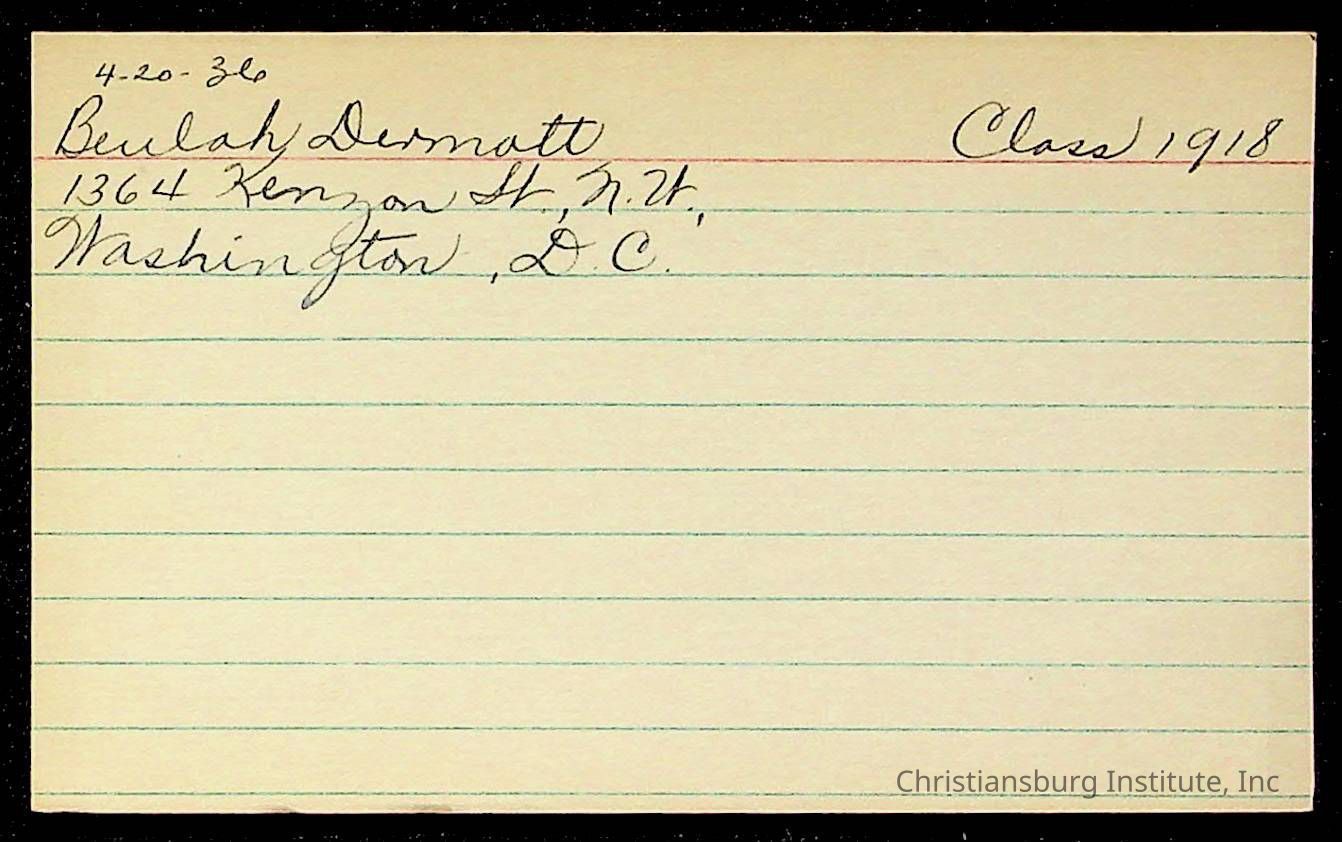 4-20-36
Beulah Dermott Class 1918
1364 Kenyon St., N.W.,
Washington, D.C.
Christiansburg Institute, Inc